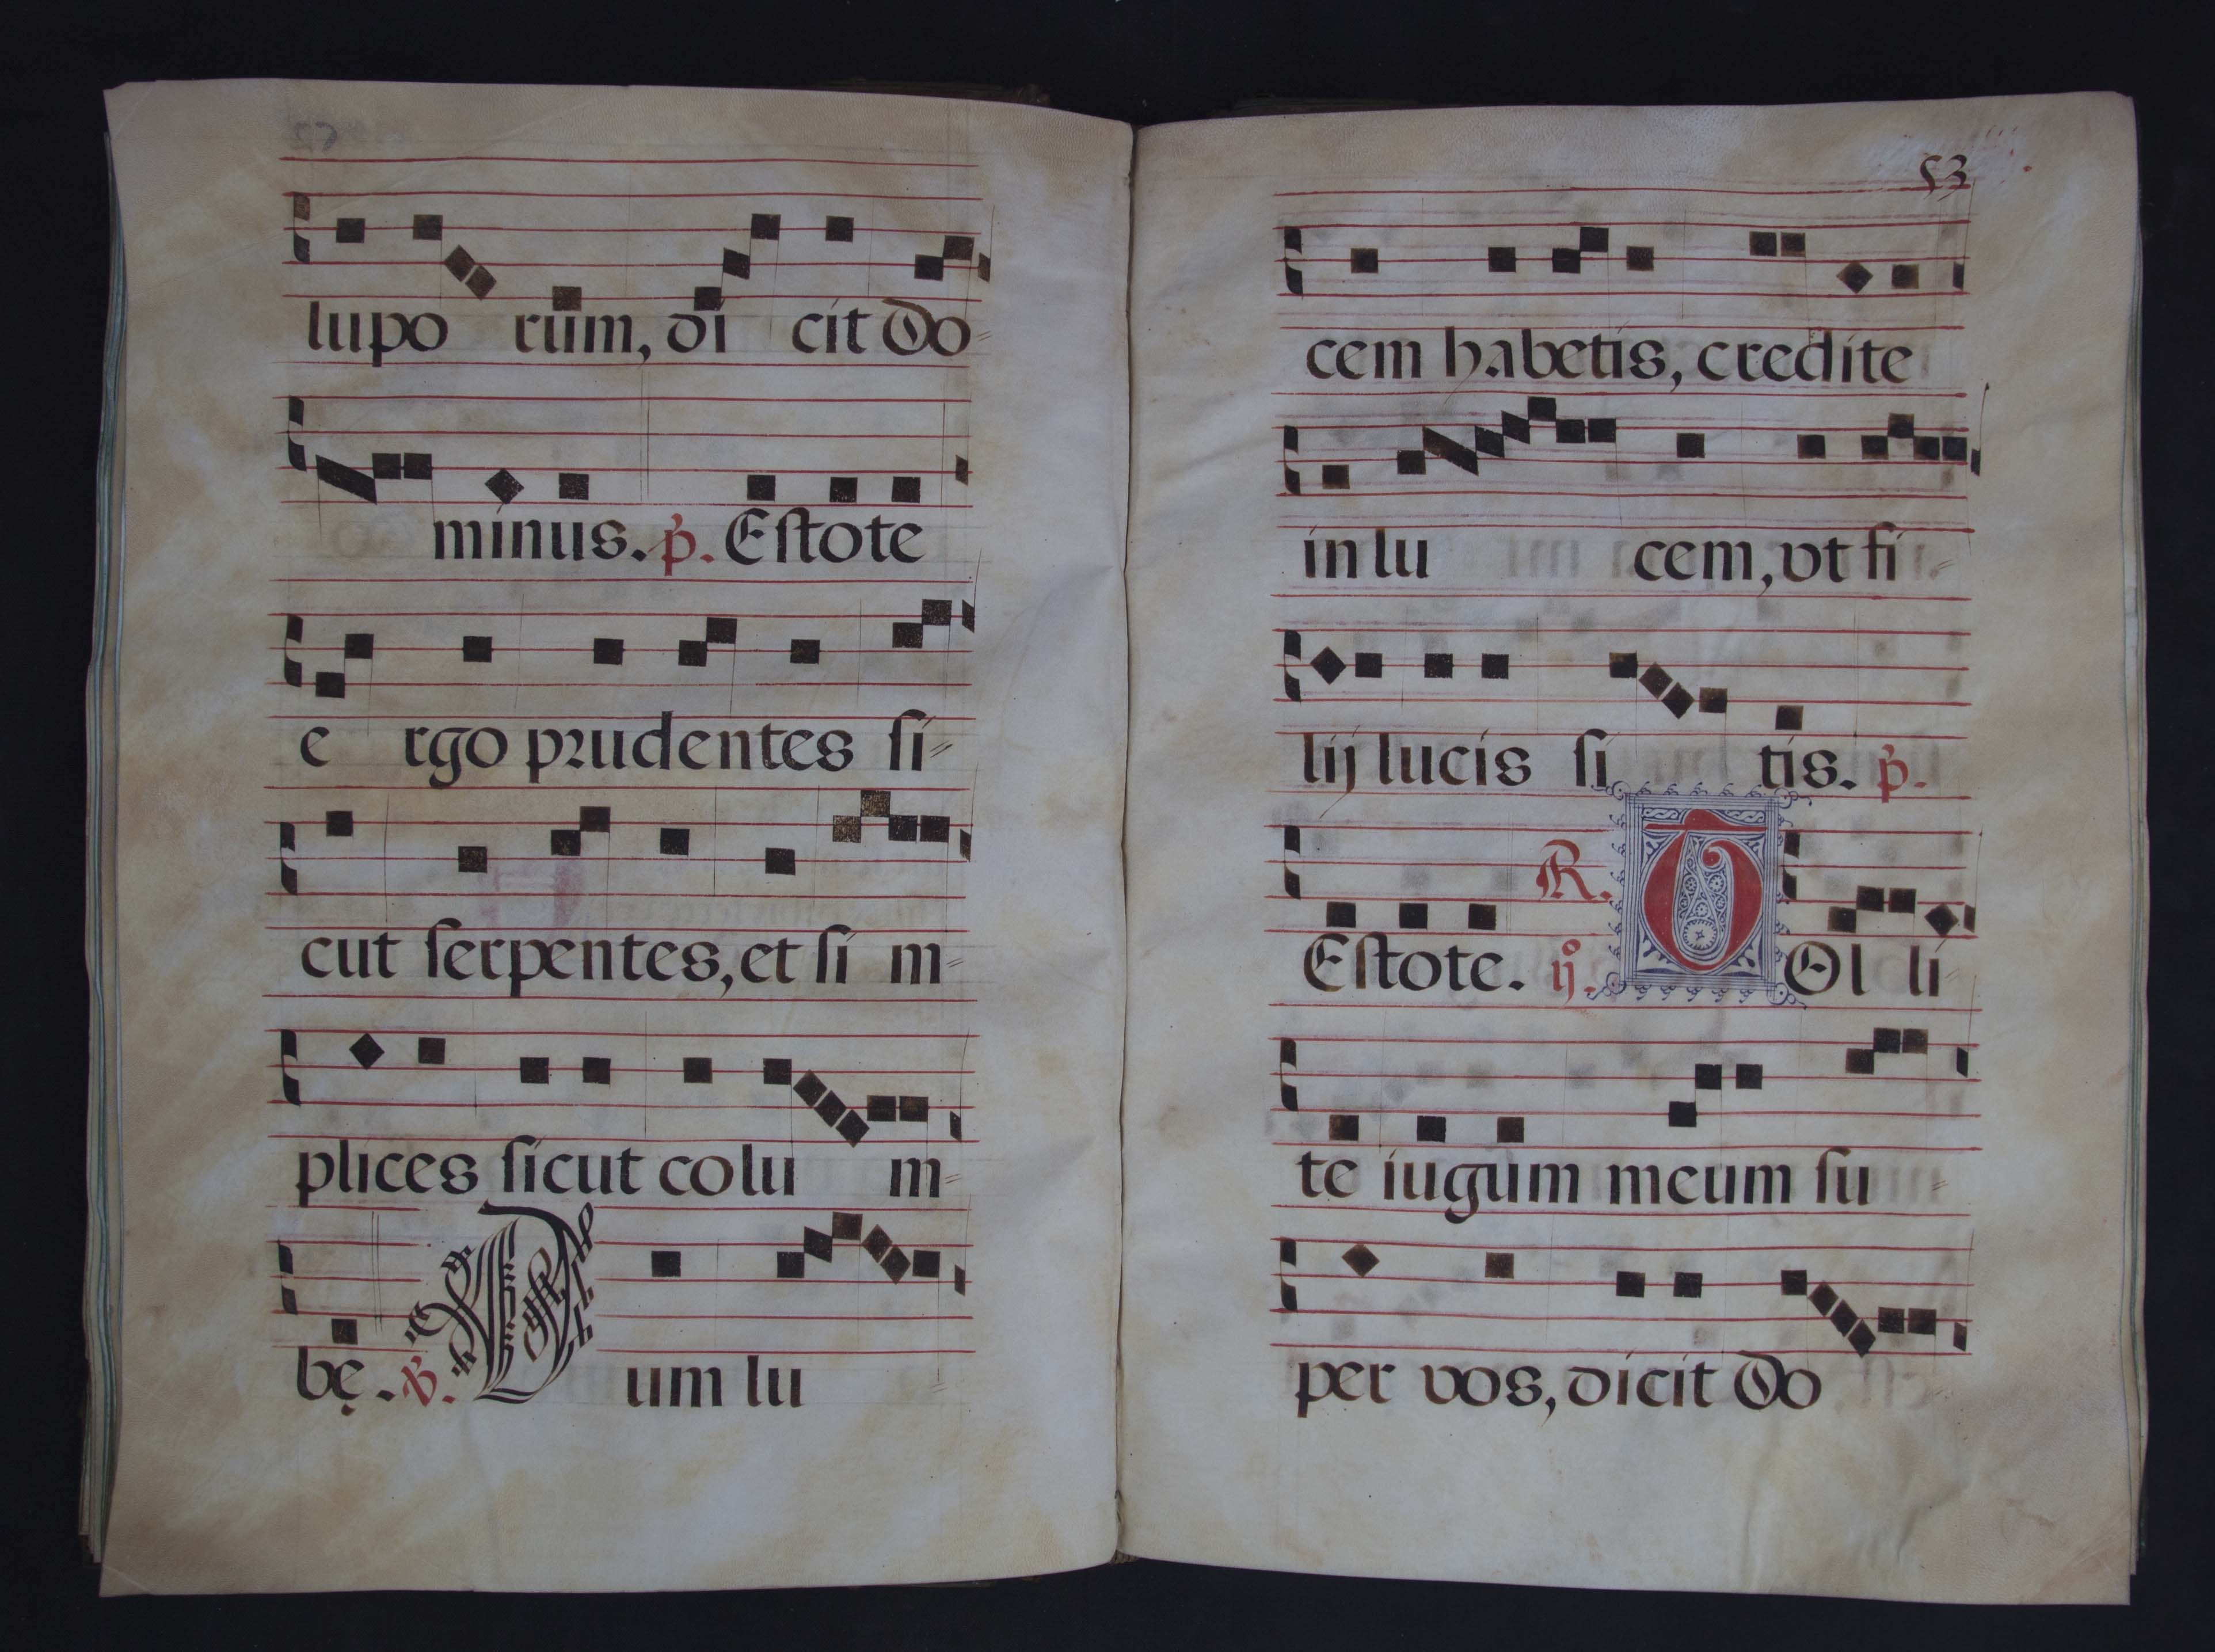 lupo rum, di cit Do=
minus. p. Estote
e rgo prudentes si=
cut serpentes, et si m=
plices sicut colu m=
bę. ꝟ. Dum lu
53
cem habetis, credite
in lu cem, vt fi=
lij lucis si tis. p.
Estote. ij. R. TOl li=
te iugum meum su=
per vos, dicit Do=